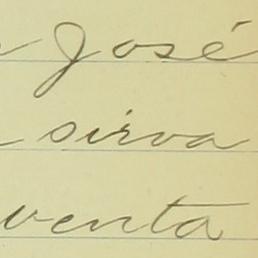 José
sirva
venta